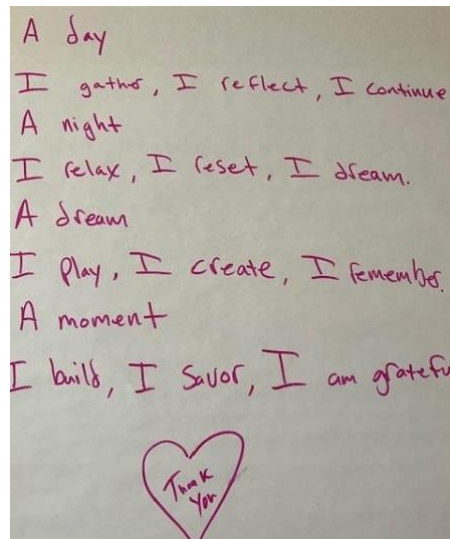 A day
I gather, I reflect, I continue
A night
I relax, I reset, I dream.
A dream
I play, I create, I remember.
A moment
I build, I savor, I am gratefu
Thank
You